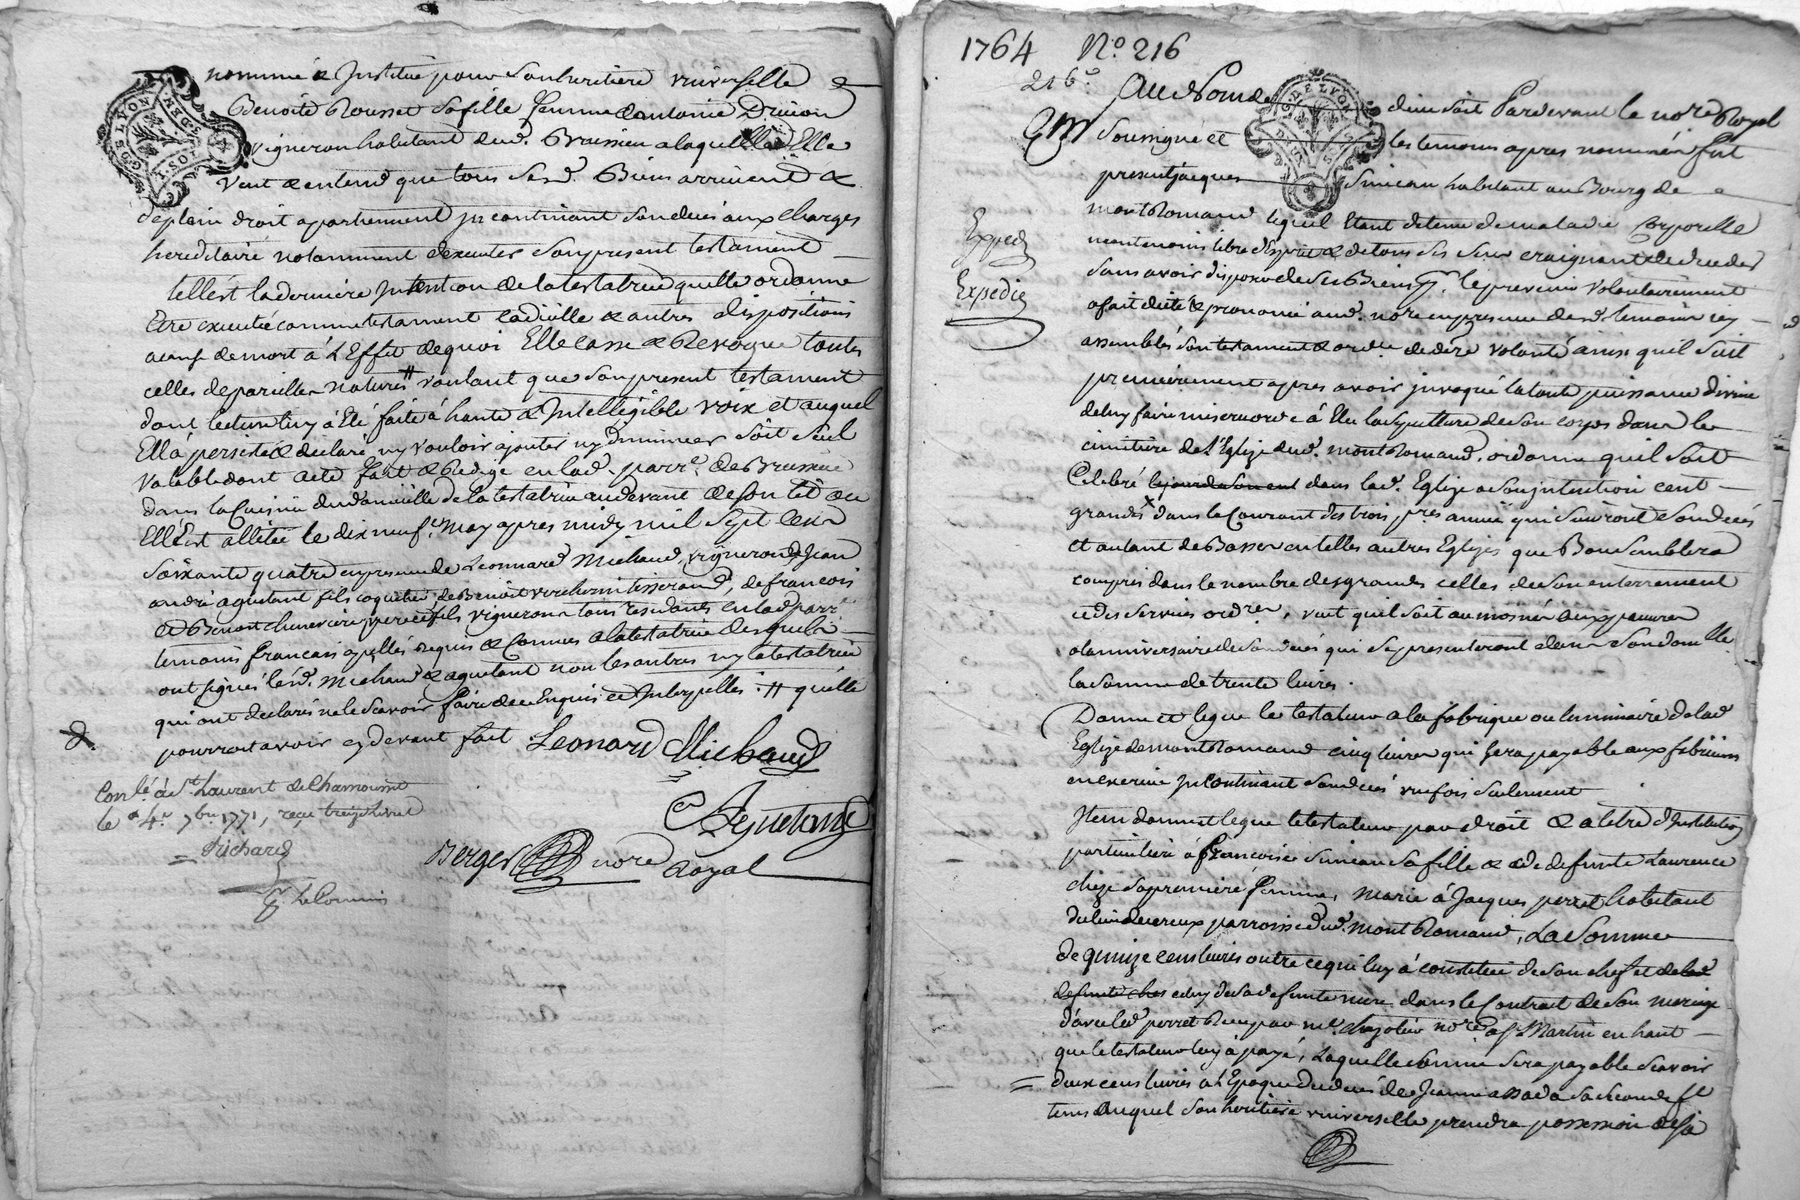 nommé & Institué pour son heritiere universelle
Benoite Rousset sa fille femme d'antoine Drivon
vigneron habitant aud. Brussieu a laquelle Elle
Veut & entend que tous sesd. Biens arrivent &
de plain droit appartiennent incontinant son deces aux charges
hereditaire notamment d'executer son present testament
tell'est la derniere Intention de la testatrice qu'elle ordonne
Etre executée comme testament codicille & autres dispositions
a cause de mort à L'Effet de quoi Elle casse & Revoque toutes
celles de pareilles natures # voulant que son present testament
dont lecture luy à Eté faite à haute & Intelligible voix et auquel
Ell'à persisté & déclaré n'y vouloir ajouter ny diminuer soit seul
Valable dont acte fait & Redigé en lad. parr.e de Brussieu
dans la Cuisine du domicille de la testatrice au devant de son lit ou
Ell'Est allitée le dix neuf.e May apres midy mil sept cent
soixante quatre en presence de Leonnard Michaud, vigneron de Jean
andré aguetant fils coquetier de Benoit tisserand, de francois
et Benoit chuneviere pere et fils vignerons tous residants en lad. parr.e
temoins francais apellés requis & Connus a la testatrice desquels
ont signés lesd. Michaud & aguetant non les autres ny la testatrice
qui ont declarés ne le scavoir faire de ce Enquis et Interpellés. # qu'elle
pourroit avoir cy devant fait Leonard Michaud
Aguetant
Berger no.re Royal
Con.lé à St Laurent de Chamousset
le 4.e 7bre 1771, reçu treize livres
Richard
1764 N.o 216
216.e
Au Nom de Dieu soit Pardevant le no.re Royal
Soussigné et les temoins apres nommés fut
present jacques Simean habitant au Bourg de
montRomand lequel Etant detenu de maladie corporelle
neantmoins libre d'Esprit & de tous ses sens craignant de deceder
sans avoir disposé de ses Biens le prevenir volontairement
Exped.
Expediée
a fait dicté & prononcé aud. no.re en presence desd. temoins cy
assemblés son testament & ord.ce de dere volonté ainsi quil suit
premierement apres avoir invoqué la toute puissance divine
de luy faire misericorde à Elu la sepulture de son corps dans le
cimetiere de L'Eglize dud. montRomand, ordonne quil soit
Celebré le jour de son ent dans lad. Eglize a son intention cent
grandes x dans le Courant des trois p.res année qui suivront son deces
et autant de Basses en telles autres Eglizes que Bon semblera
compris dans le nombre des grandes celles de son enterrement
et des services ord.res, veut quil soit aumoiné aux pauvres
a l'anniversaire de son deces qui se presenteront dans son dom.lle
la somme de trente livres.
Donne et legue le testateur a la fabrique ou luminaire de lad
Eglize de montRomand cinq livres qui sera payable aux fabriciens
en exercice incontinant son deces une fois seulement
Item donne et legue le testateur par droit & a titre d'Institution
particuliere à francoise Simean sa fille & de defunte Laurence
chize sa premiere femme, Marie à Jacques perret habitant
du lieu parroisse dud. montRomand, La somme
de quinze cens livres outre ce qu'il luy à constitué de son chef et de lad
defunte celuy de sa defunte mere dans le Contrat de son mariage
d'avec led. perret Reçu par m.e no.re a St Martin en haut
que le testateur luy à payé, Laquelle somme sera payable scavoir
= deux cens livres a L'Epoque du deces de Jeanne sa seconde f.e
tems auquel son heritiere universelle prendra possession de sa